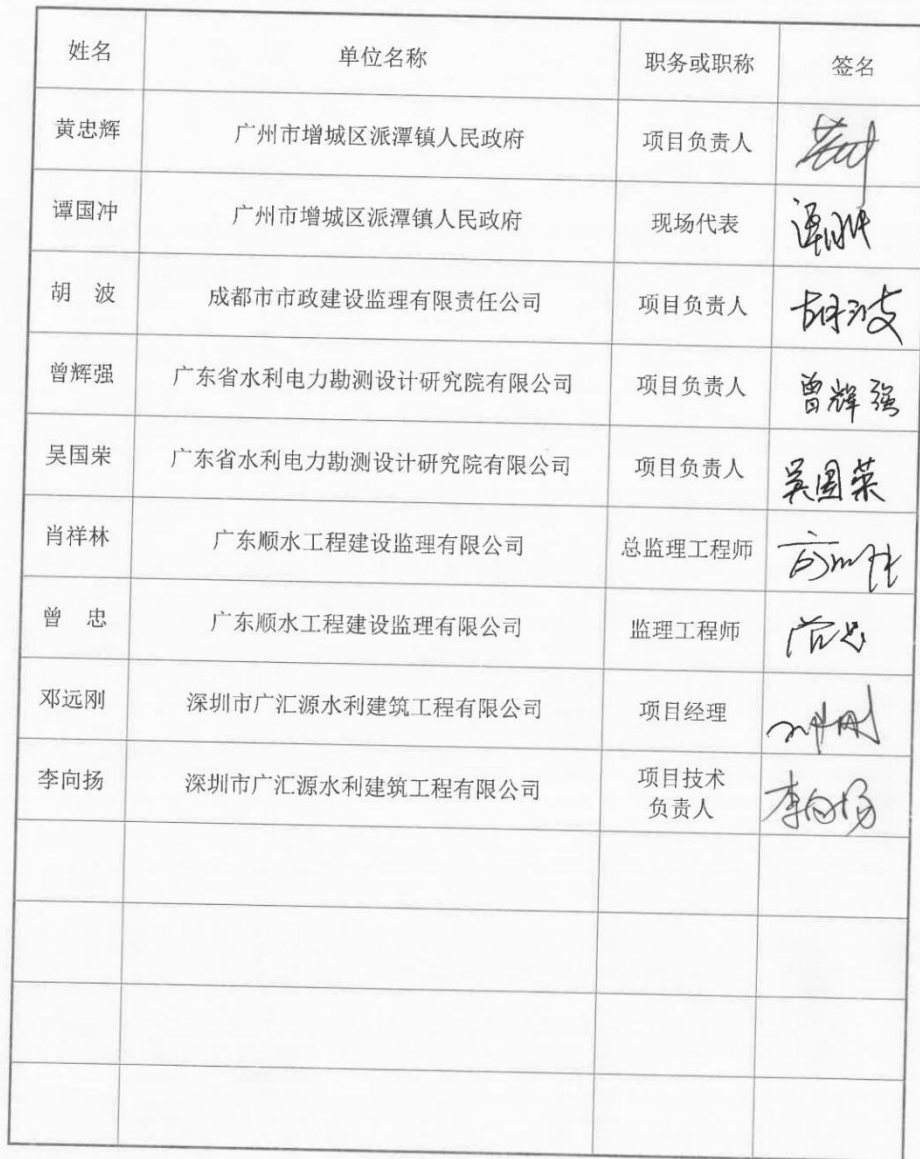 姓名 单位名称 职务或职称 签名
黄忠辉 广州市增城区派潭镇人民政府 项目负责人
谭国冲 广州市增城区派潭镇人民政府 现场代表
胡 波 成都市市政建设监理有限责任公司 项目负责人 胡波
曾辉强 广东省水利电力勘测设计研究院有限公司 项目负责人 曾辉强
吴国荣 广东省水利电力勘测设计研究院有限公司 项目负责人 吴国荣
肖祥林 广东顺水工程建设监理有限公司 总监理工程师
曾 忠 广东顺水工程建设监理有限公司 监理工程师
邓远刚 深圳市广汇源水利建筑工程有限公司 项目经理
李向扬 深圳市广汇源水利建筑工程有限公司 项目技术
负责人 李向扬